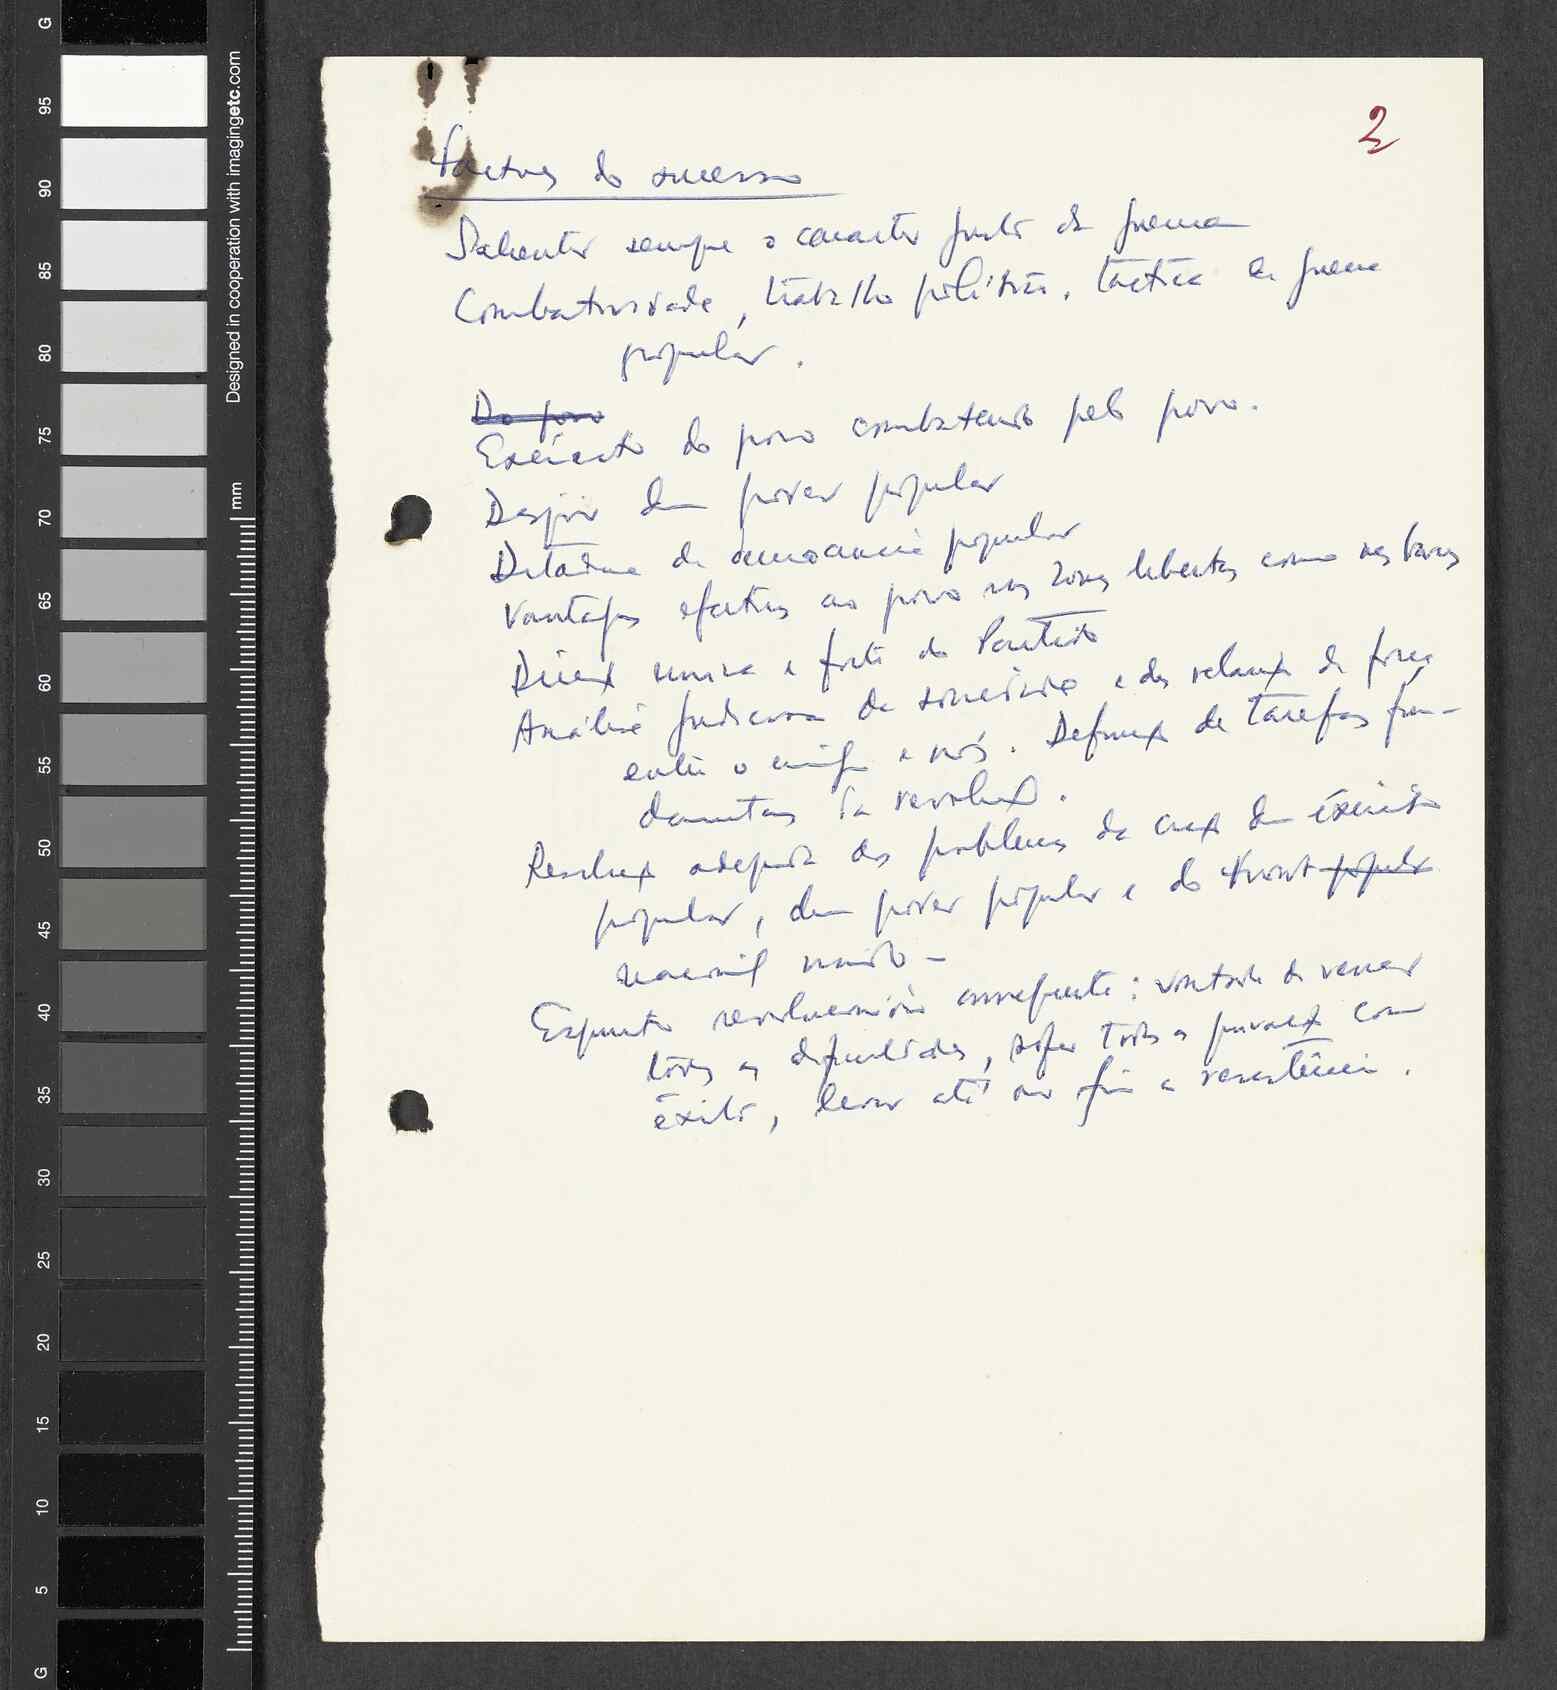 2
Factores do sucesso
Salientar sempre o caracter justo da guerra
Combatividade, trabalho político, táctica da guerra
popular.
Do povo
Exército do povo combatendo pelo povo.
Dispôr dum poder popular
Ditadura da democracia popular
Vantagens efectivas ao povo nas zonas libertas como nas bases
Direcç única e forte do Partido
Análise judiciosa da sociedade e das relaç de força
entre o inimigo e nós. Definiç de tarefas fun-
damentais da revoluç.
Resoluç adequada dos problemas da criaç dum exército
popular, dum poder popular e do front popular
nacional unido -
Espírito revolucionário consequente: vontade de vencer
todas as dificuldades, sofrer todas as privaç com
êxito, levar até ao fim a resistência.
Designed in cooperation with imagingetc.com
mm
G
95
90
85
80
75
70
65
60
55
50
45
40
35
30
25
20
15
10
5
G